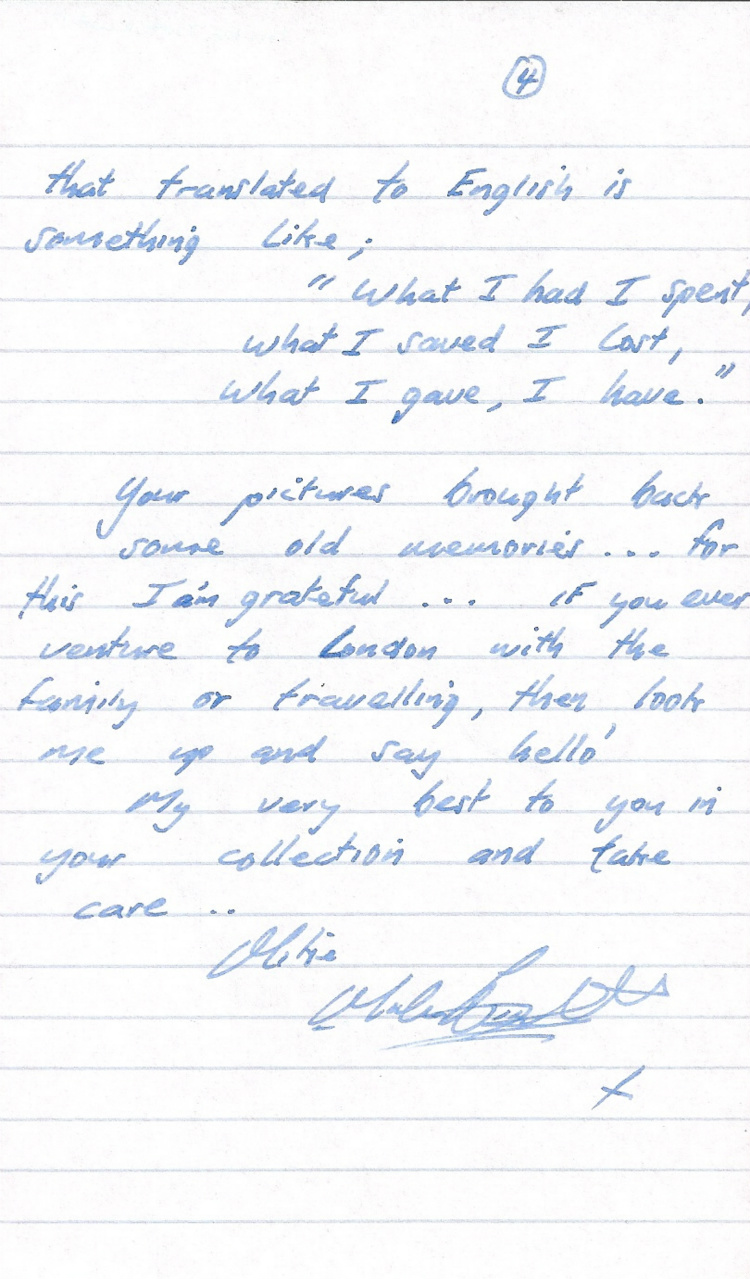 4
that translated to English is
something like;
"What I had I spent,
what I saved I lost,
What I gave, I have."
Your pictures brought back
some old memories... for
this I am grateful ... if you ever
venture to London with the
family or travelling, then look
me up and say hello'
My very best to you in
your collection and take
care ..
Mike
x